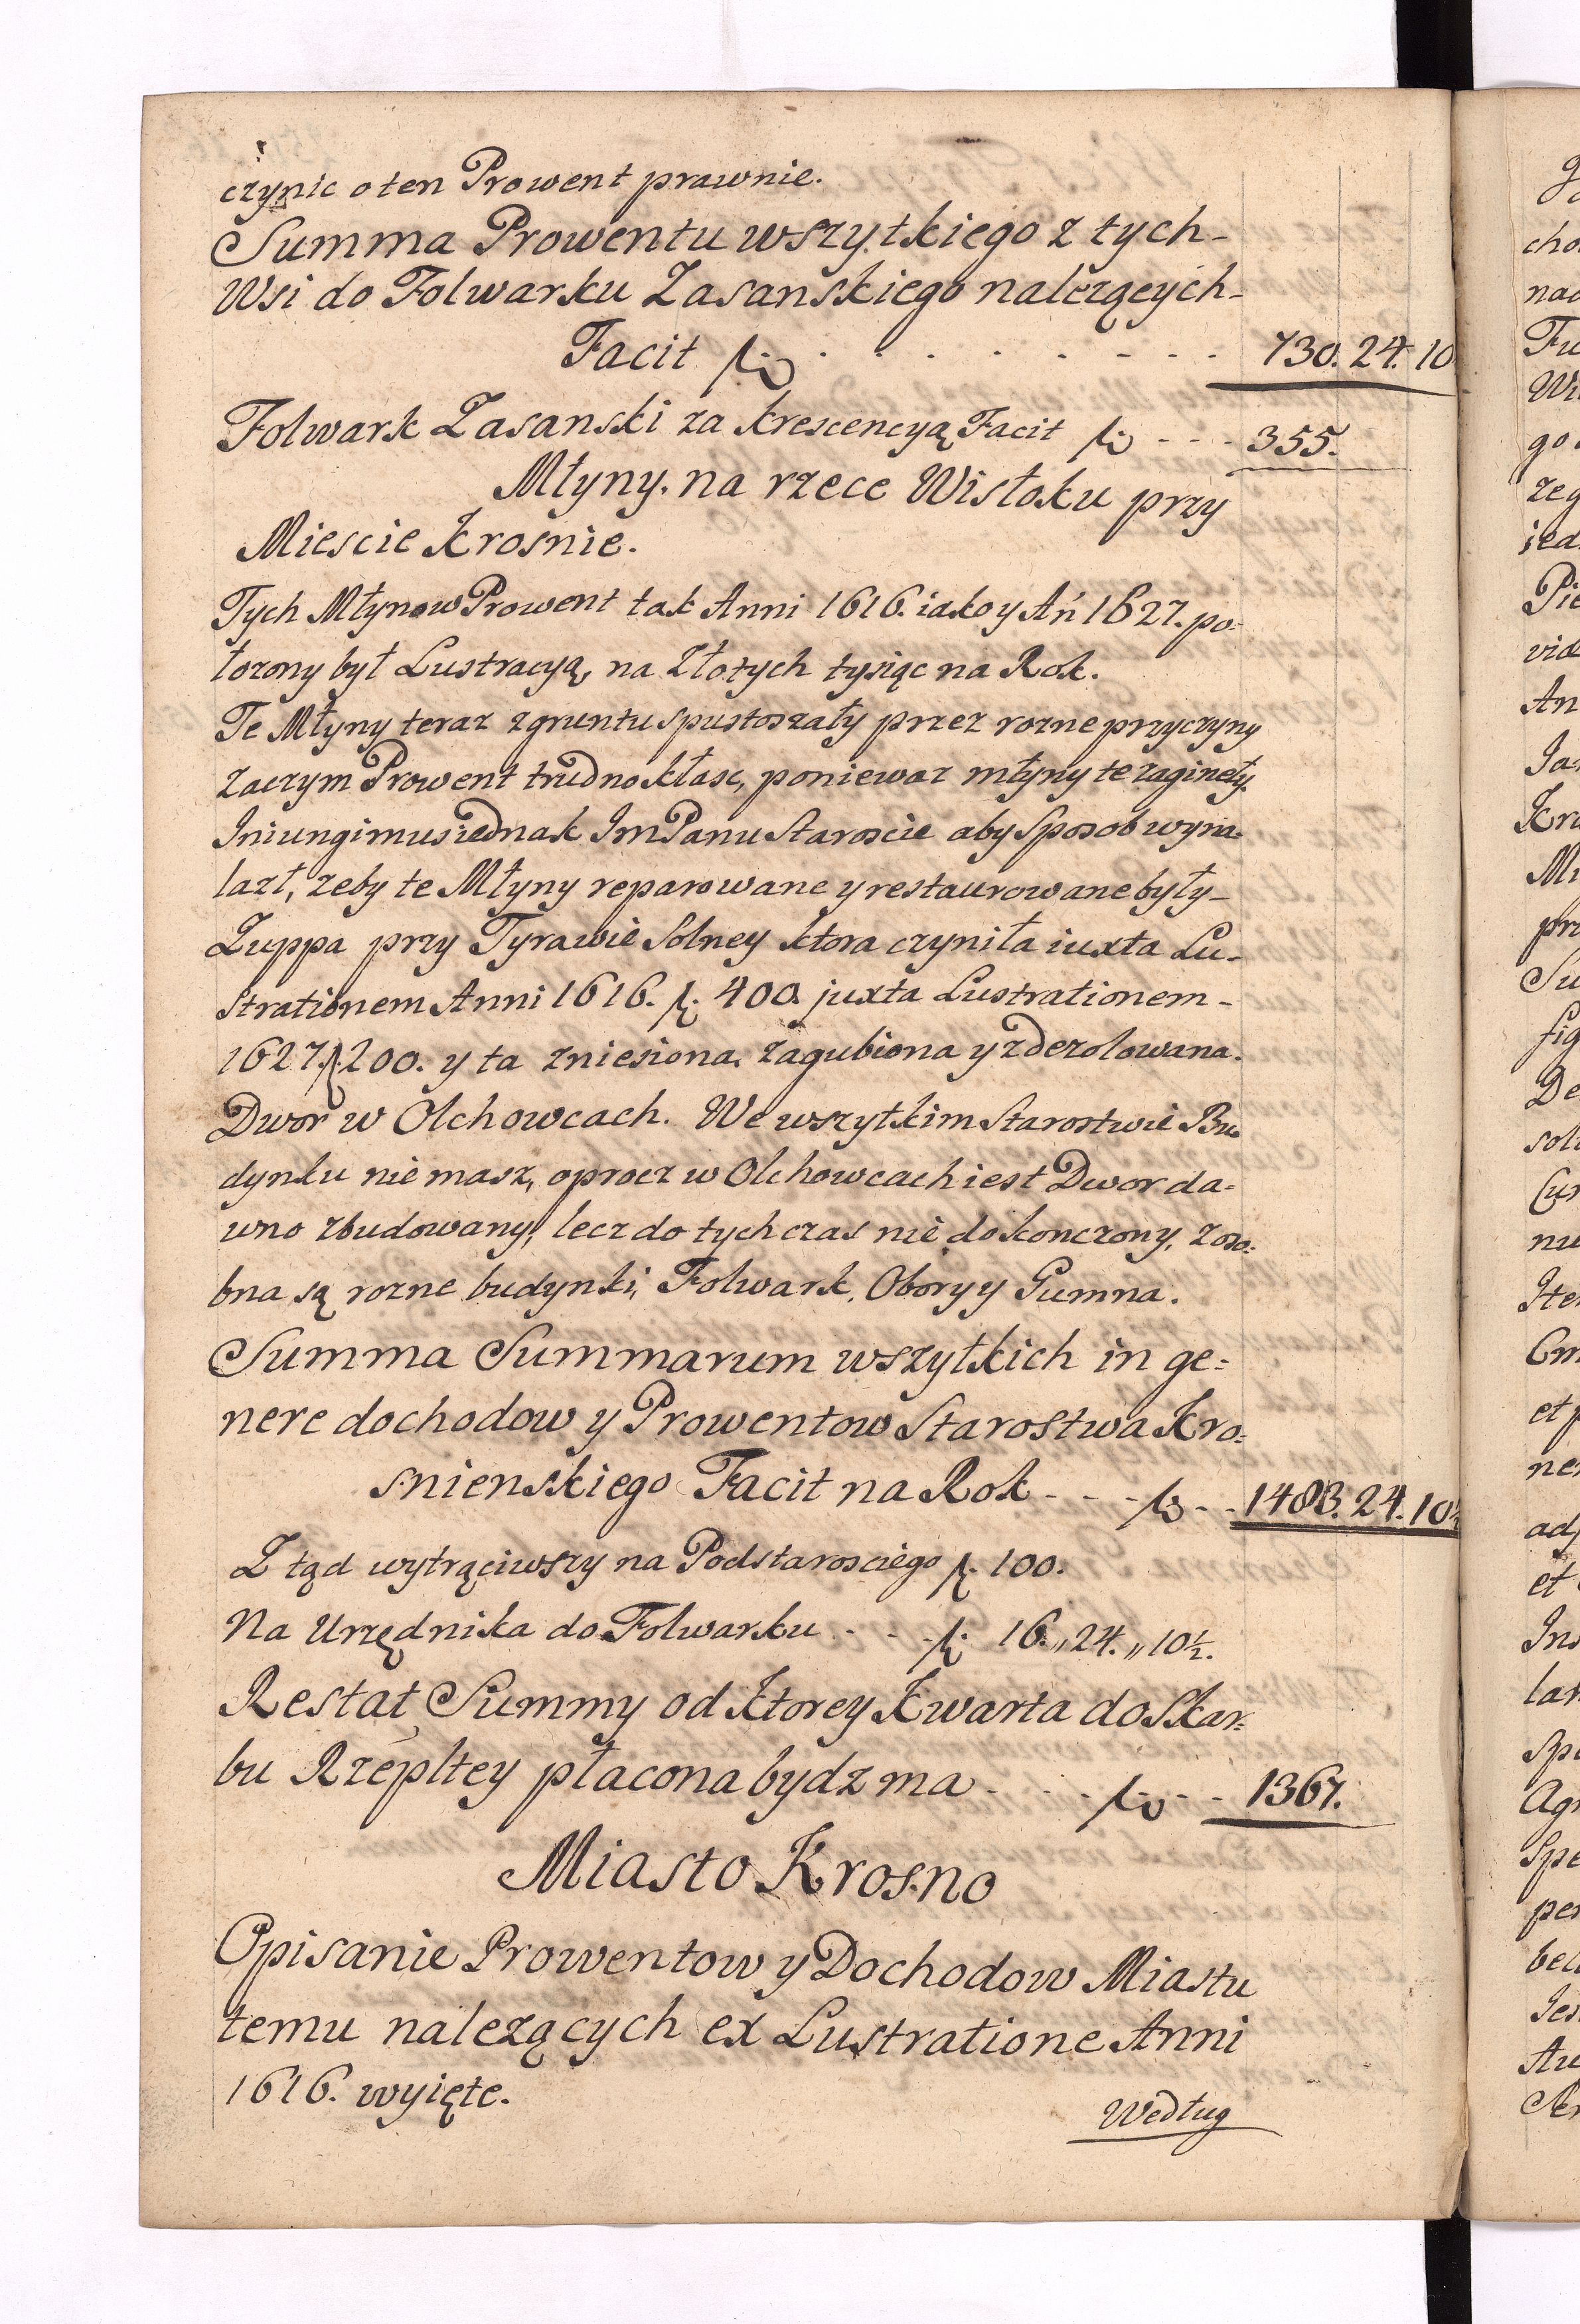 czynic o ten Prowent prawnie.
Summa Prowentu wszytkiego z tych
Wsi do Folwarku Zasanskiego nalezących
Facit fl. . . . . . . . 730. 24. 10
Folwark Zasanski za Krescencyą Facit fl. - - - 355.
Młyny na rzece Wisłoku przy
Miescie Krosnie.
Tych Młynow Prowent tak Anni 1616. iako y Añ 1627. po=
łozony był Lustracyą, na Złotych tysiąc na Rok.
Te Młyny teraz z gruntu spustoszały przez rozne przyczyny
Zaczym Prowent trudno kłasc, poniewaz młyny te zagineły.
Iniungimus iednak Im Panu Staroscie aby Sposob wyna=
lazł, zeby te Młyny reparowane y restaurowane były
Zuppa przy Tyrawie Solney ktora czyniła iuxta Lu=
strationem Anni 1616. fl. 400. juxta Lustrationem
1627. fl. 200. y ta zniesiona, zagubiona y zdezolowana.
Dwor w Olchowcach. We wszytkim Starostwie Bu=
dynku nie masz, oprocz w Olchowcach iest Dwor da=
wno zbudowany, lecz do tych czas nie dokonczony, z oso=
bna są rozne budynki, Folwark, Obory y Gumna.
Summa Summarum wszytkich in ge=
nere dochodow y Prowentow Starostwa Kro=
snienskiego Facit na Rok - - - fl. - - 1483. 24. 10½
Ztąd wytrąciwszy na Podstarosciego fl. 100.
Na Urzędnika do Folwarku - - - fl. 16. „ 24. „ 10½.
Restat Summy od ktorey Kwarta do Skar=
bu Rzepltey płacona bydz ma - - - fl. - - 1367.
Miasto Krosno
Opisanie Prowentow y Dochodow Miastu
temu nalezących ex Lustratione Anni
1616. wyięte.
Według